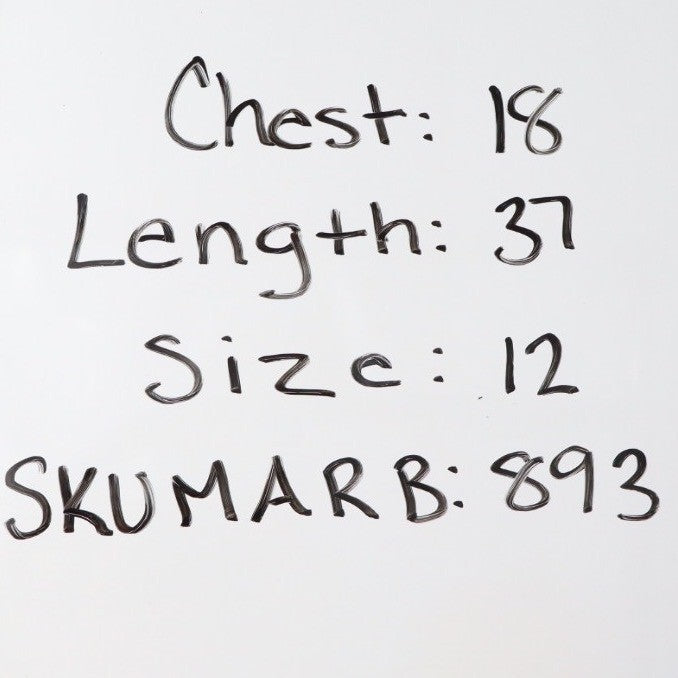 Chest: 18
Length: 37
Size: 12
SKUMARB: 893